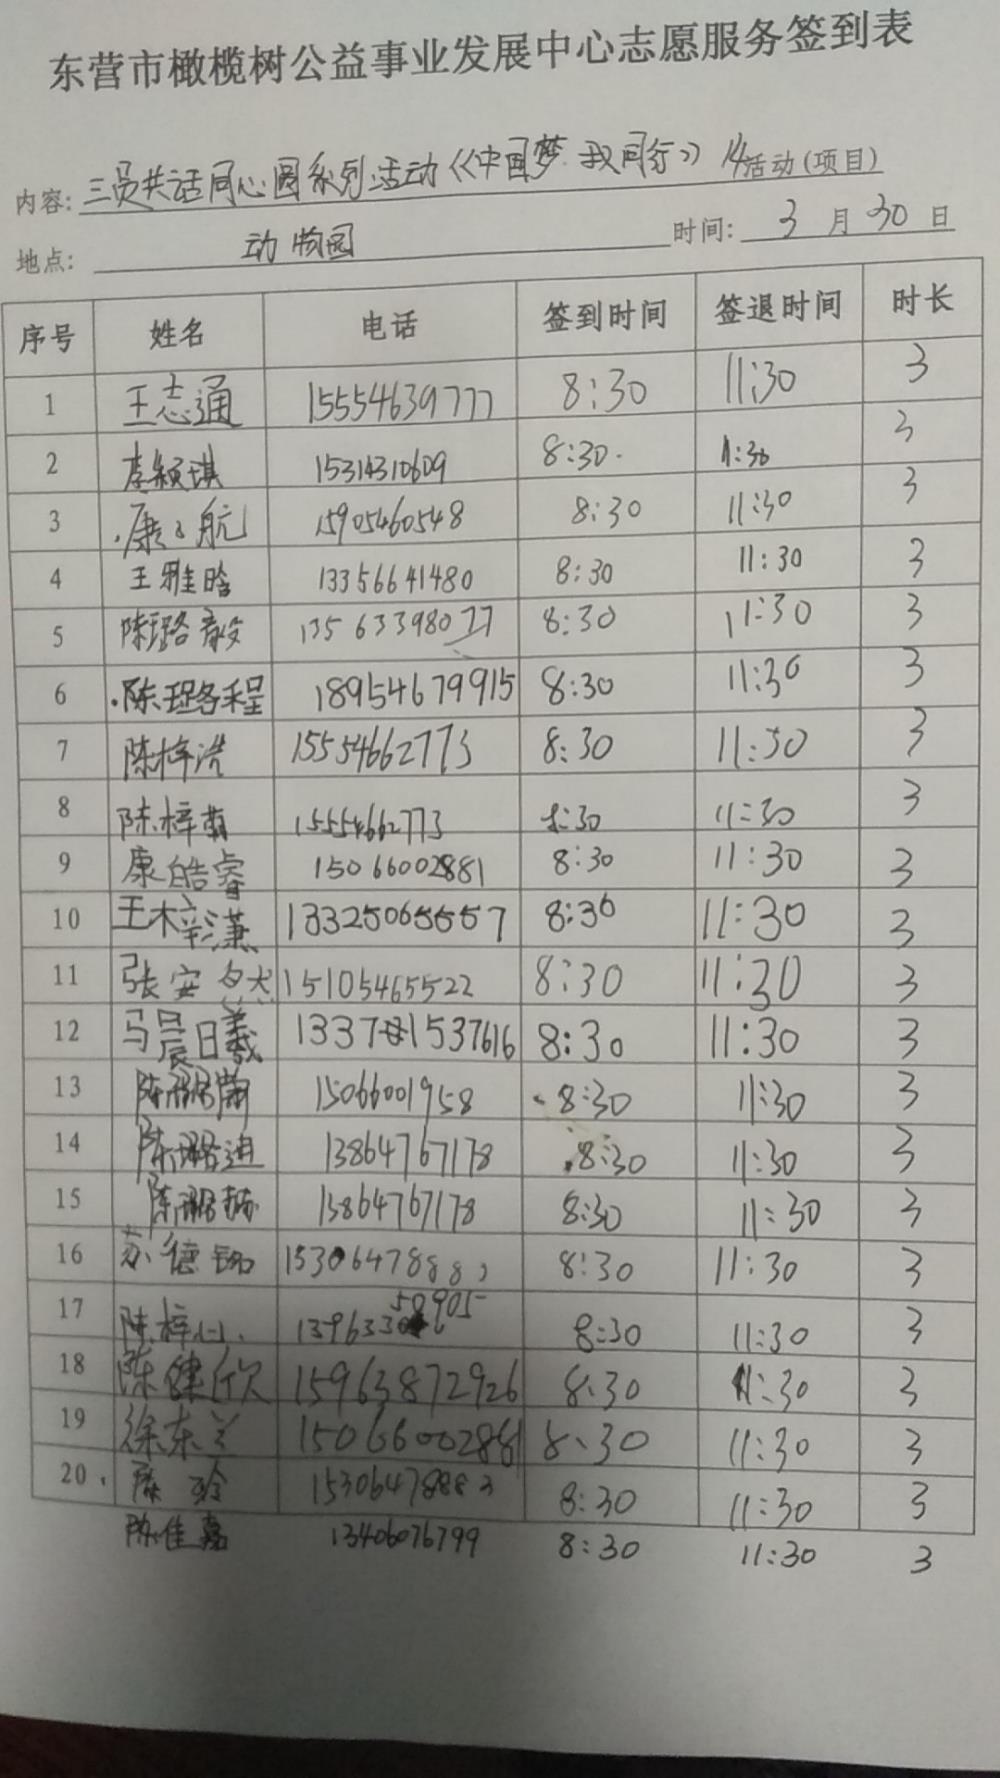 东营市橄榄树公益事业发展中心志愿服务签到表
内容: 三员共话同心圆系列活动《中国梦 我同行》14活动(项目)
地点: 动物园 时间: 3月30日
序号 姓名 电话 签到时间 签退时间 时长
1 王志通 15554639777 8:30 11:30 3
2 李颖琪 15314310609 8:30 11:30 3
3 康 航 15905460548 8:30 11:30 3
4 王雅晗 13356641480 8:30 11:30 3
5 陈璐 13563398077 8:30 11:30 3
6 陈璐程 18954679915 8:30 11:30 3
7 陈梓浩 15554662773 8:30 11:30 3
8 陈梓萌 15554662773 8:30 11:30 3
9 康皓睿 15066002881 8:30 11:30 3
10 王梓潇 13325065557 8:30 11:30 3
11 张安然 15105465522 8:30 11:30 3
12 马晨曦 13371537616 8:30 11:30 3
13 陈 15066001958 8:30 11:30 3
14 陈璐进 13864767178 8:30 11:30 3
15 陈 13864767178 8:30 11:30 3
16 苏德铭 8:30 11:30 3
17 陈梓心 8:30 11:30 3
18 陈健欣 15963872926 8:30 11:30 3
19 徐东兰 15066002881 8:30 11:30 3
20 玲 15306478883 8:30 11:30 3
陈佳嘉 13406076799 8:30 11:30 3